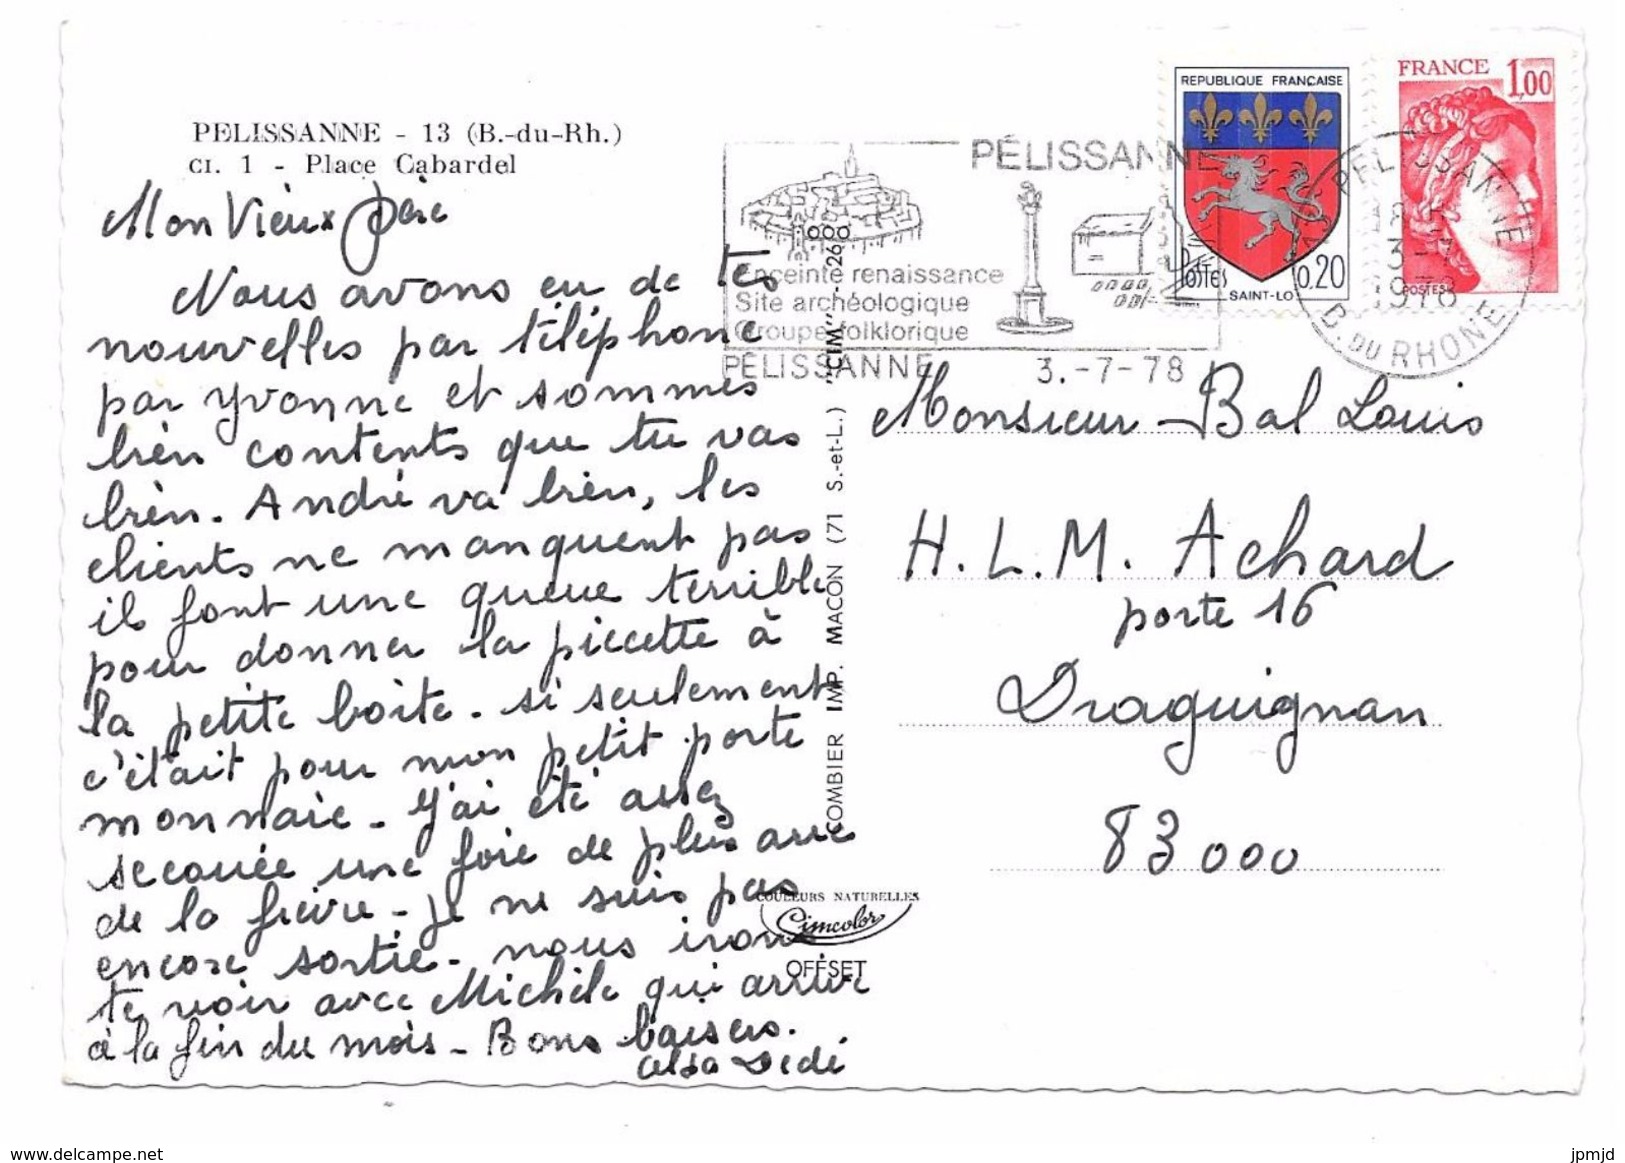 PELISSANNE - 13 (B.-du-Rh.)
CI. 1 - Place Cabardel
Mon Vieux père
Nous avons eu de tes
nouvelles par téléphone
par Yvonne et sommes
bien contents que tu vas
bien. André va bien, les
clients ne manquent pas
il font une queue terrible
pour donner la piecette à
la petite boite - si seulement
c'était pour mon petit porte
monnaie - J'ai été assez
secouée une fois de plus avec
de la fièvre - je ne suis pas
encore sortie - nous irons
te voir avec Michèle qui arrive
à la fin du mois - Bons baisers.
Dédé
COMBIER IMP. MACON (71 S.-et-L.) "CIM" - 26
COULEURS NATURELLES
Cimcolor
OFFSET
PÉLISSANNE
Enceinte renaissance
Site archéologique
Groupe folklorique
PÉLISSANNE 3.-7-78
REPUBLIQUE FRANÇAISE
POSTES 0,20
SAINT-LO
FRANCE 1,00
POSTES
PELISSANNE
3-7
1978
B. DU RHONE
Monsieur Bal Louis
H.L.M. Achard
porte 16
Draguignan
83000
www.delcampe.net
jpmjd